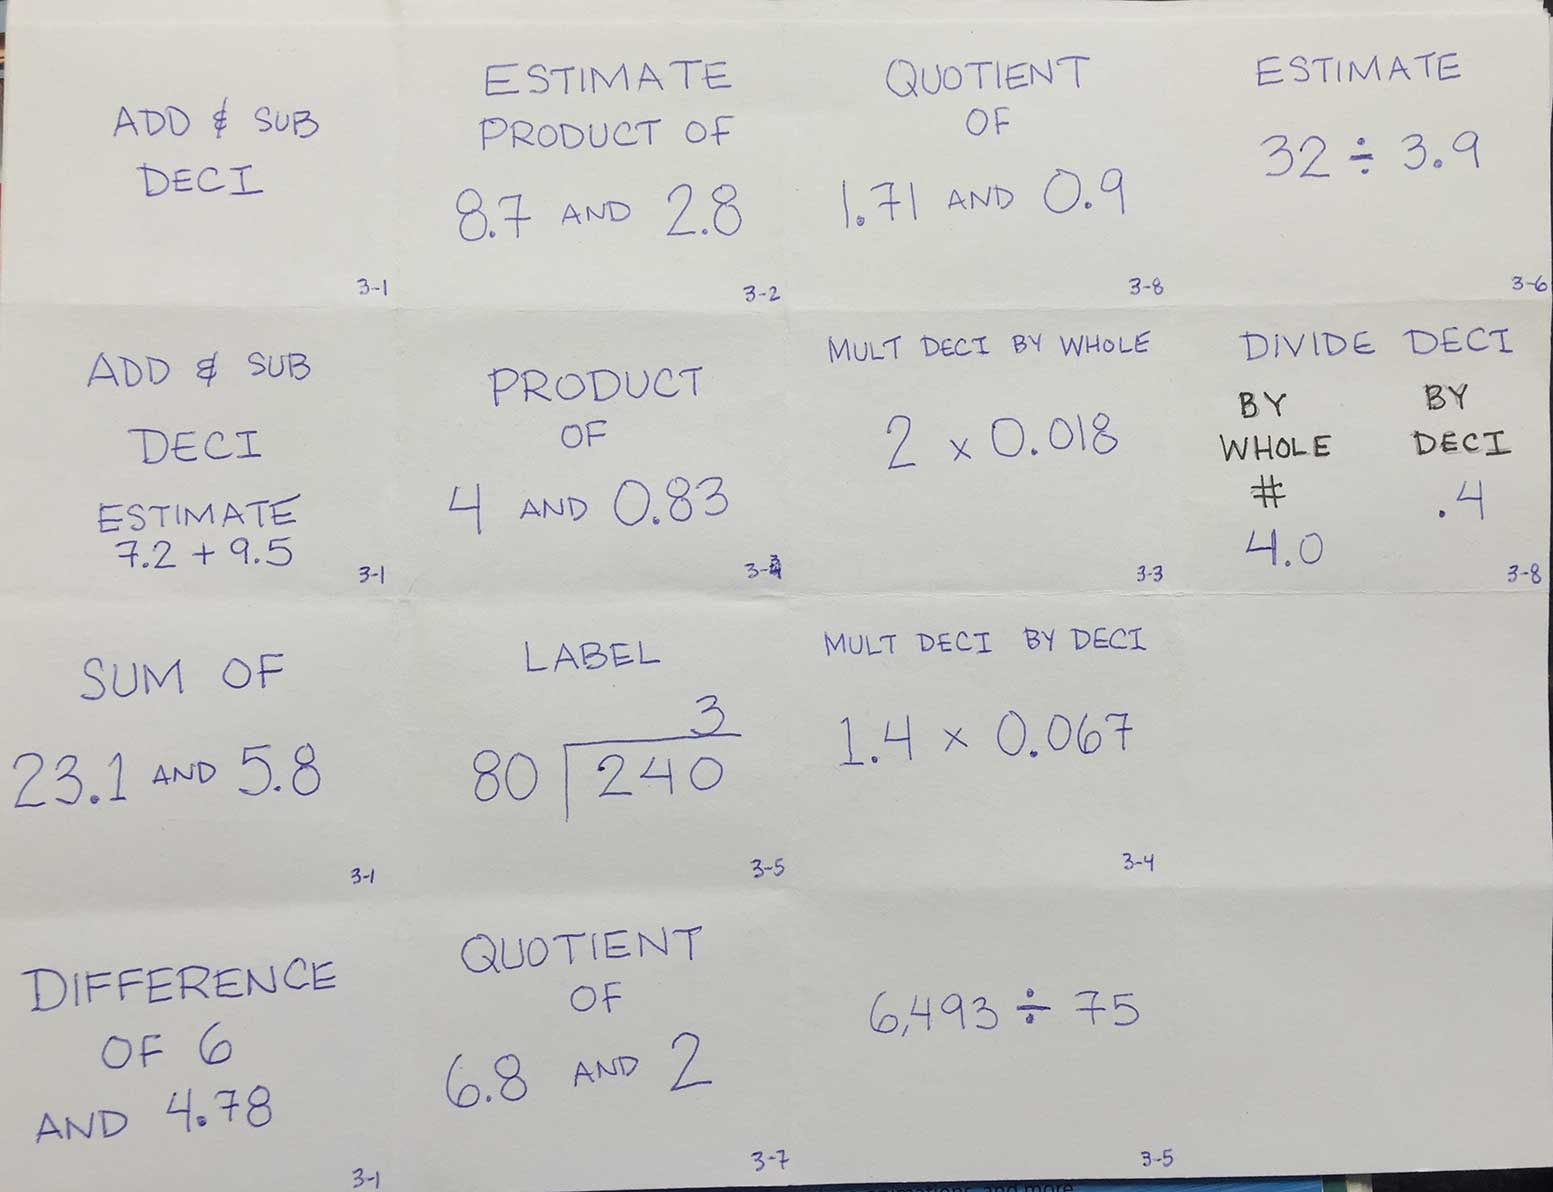 ADD & SUB
DECI
3-1
ESTIMATE
PRODUCT OF
8.7 AND 2.8
3-2
QUOTIENT
OF
1.71 AND 0.9
3-8
ESTIMATE
32 ÷ 3.9
3-6
ADD & SUB
DECI
ESTIMATE
7.2 + 9.5
3-1
PRODUCT
OF
4 AND 0.83
3-3
MULT DECI BY WHOLE
2 x 0.018
3-3
DIVIDE DECI
BY
WHOLE
#
4.0
BY
DECI
.4
3-8
SUM OF
23.1 AND 5.8
3-1
LABEL
3
80 240
3-5
MULT DECI BY DECI
1.4 x 0.067
3-4
DIFFERENCE
OF 6
AND 4.78
3-1
QUOTIENT
OF
6.8 AND 2
3-7
6,493 ÷ 75
3-5
and more